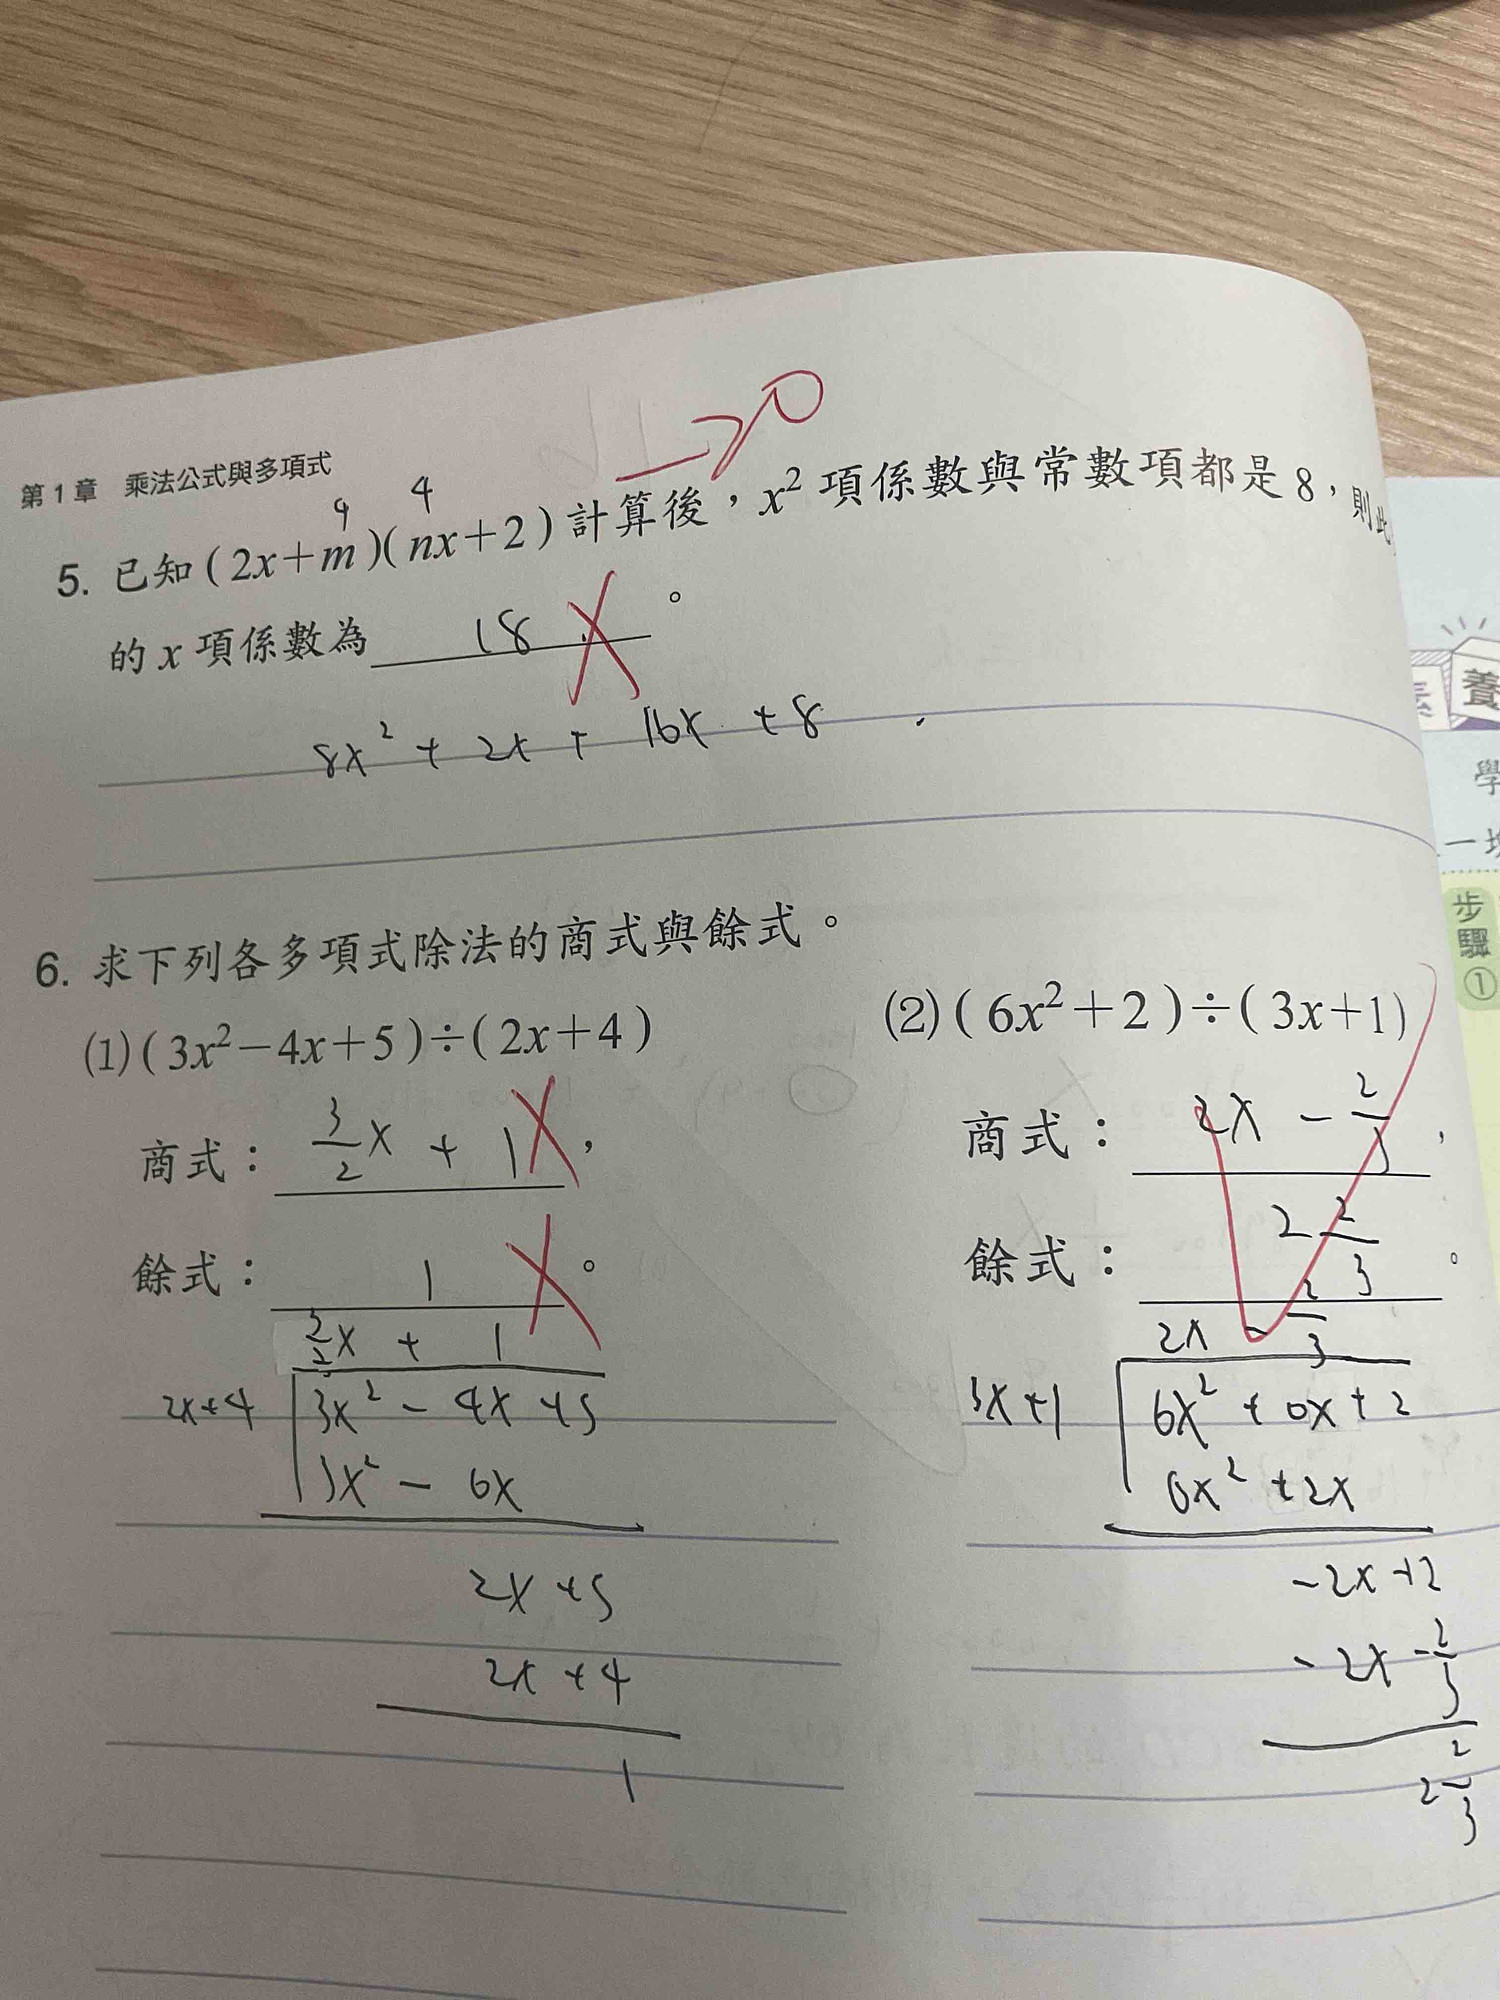 第1章 乘法公式與多項式
4 4
5. 已知(2x+m)(nx+2)計算後，x²項係數與常數項都是8，則此
的x項係數為 18 。
8x² + 2x + 16x + 8
6. 求下列各多項式除法的商式與餘式。
(1)(3x²−4x+5)÷(2x+4)
商式： 3/2 x + 1 ，
餘式： 1 。
3/2 x + 1
2x+4 3x² − 4x + 5
3x² − 6x
2x + 5
2x + 4
1
(2)(6x²+2)÷(3x+1)
商式： 2x − 2/3 ，
餘式： 2 2/3 。
2x − 2/3
3x+1 6x² + 0x + 2
6x² + 2x
−2x+2
−2x−2/3
2 2/3
養
學
一塊
步
驟
①